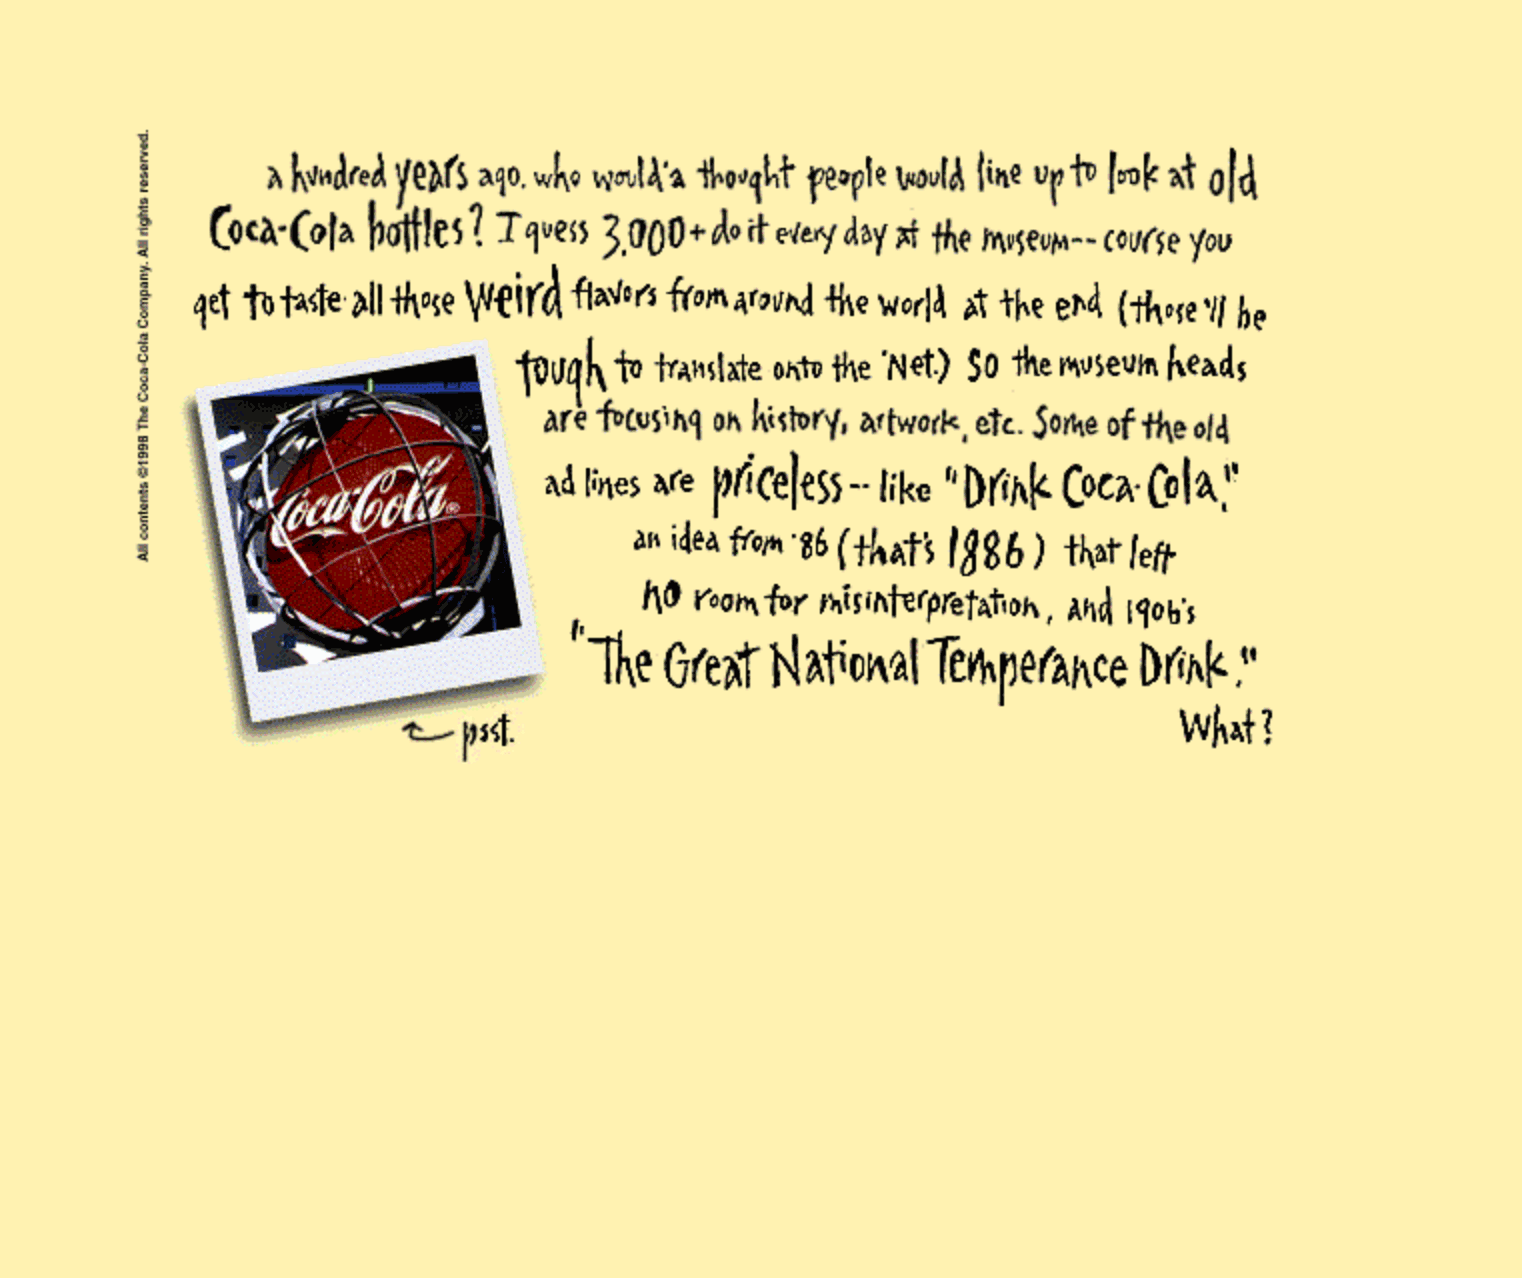 All contents ©1998 The Coca-Cola Company. All rights reserved.
a hundred years ago. who would'a thought people would line up to look at old
Coca-Cola bottles? I guess 3,000+ do it every day at the museum-- course you
get to taste all those weird flavors from around the world at the end (those'll be
tough to translate onto the 'Net.) So the museum heads
are focusing on history, artwork, etc. Some of the old
ad lines are priceless-- like "Drink Coca-Cola,"
an idea from '86 (that's 1886) that left
no room for misinterpretation, and 1906's
"The Great National Temperance Drink."
What?
Coca-Cola®
psst.